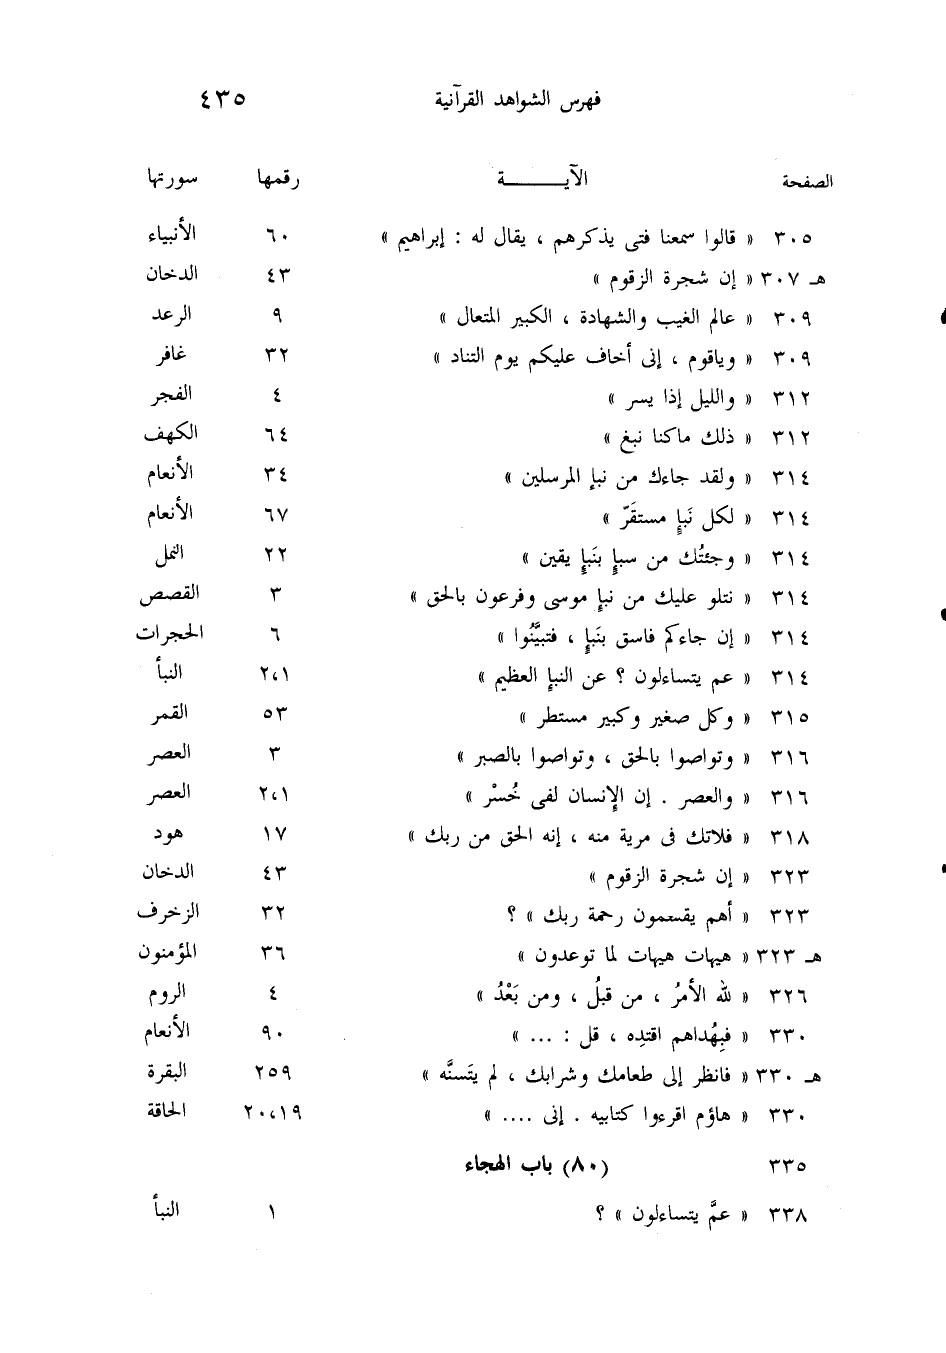 فهرس الشواهد القرآنية ٤٣٥
الصفحة الآيـــــــة رقمها سورتها
٣٠٥ « قالوا سمعنا فتى يذكرهم ، يقال له : إبراهيم » ٦٠ الأنبياء
هـ ٣٠٧ « إن شجرة الزقوم » ٤٣ الدخان
٣٠٩ « عالم الغيب والشهادة ، الكبير المتعال » ٩ الرعد
٣٠٩ « وياقوم ، إنى أخاف عليكم يوم التناد » ٣٢ غافر
٣١٢ « والليل إذا يسر » ٤ الفجر
٣١٢ « ذلك ماكنا نبغ » ٦٤ الكهف
٣١٤ « ولقد جاءك من نبإ المرسلين » ٣٤ الأنعام
٣١٤ « لكل نَبإٍ مستقَرّ » ٦٧ الأنعام
٣١٤ « وجئتُك من سبإٍ بنَبإٍ يقين » ٢٢ النمل
٣١٤ « نتلو عليك من نبإ موسى وفرعون بالحق » ٣ القصص
٣١٤ « إن جاءكم فاسق بنَبإٍ ، فتبيَّنُوا » ٦ الحجرات
٣١٤ « عم يتساءلون ؟ عن النبإ العظيم » ٢،١ النبأ
٣١٥ « وكل صغير وكبير مستطر » ٥٣ القمر
٣١٦ « وتواصوا بالحق ، وتواصوا بالصبر » ٣ العصر
٣١٦ « والعصر . إن الإنسان لفى خُسْر » ٢،١ العصر
٣١٨ « فلاتك فى مرية منه ، إنه الحق من ربك » ١٧ هود
٣٢٣ « إن شجرة الزقوم » ٤٣ الدخان
٣٢٣ « أهم يقسمون رحمة ربك » ؟ ٣٢ الزخرف
هـ ٣٢٣ « هيهات هيهات لما توعدون » ٣٦ المؤمنون
٣٢٦ « لله الأمرُ ، من قبلُ ، ومن بَعْدُ » ٤ الروم
٣٣٠ « فبِهُداهم اقتدِه ، قل : ... » ٩٠ الأنعام
هـ ٣٣٠ « فانظر إلى طعامك وشرابك ، لم يتَسنَّه » ٢٥٩ البقرة
٣٣٠ « هاؤم اقرءوا كتابيه . إنى .... » ٢٠،١٩ الحاقة
٣٣٥ (٨٠) باب الهجاء
٣٣٨ « عمَّ يتساءلون » ؟ ١ النبأ